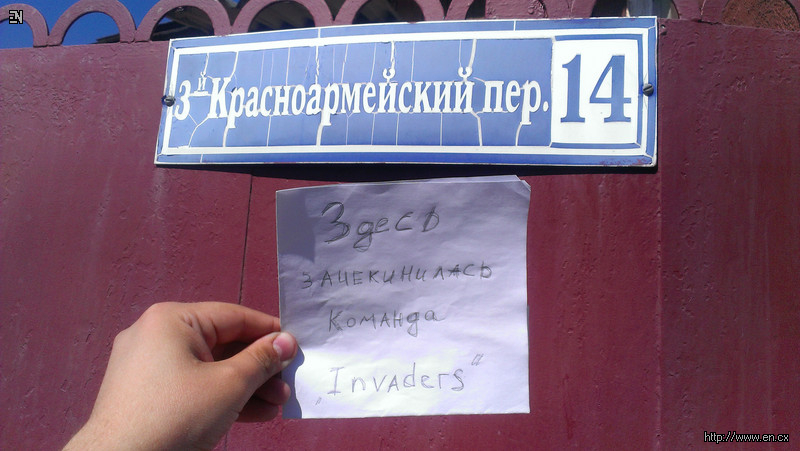 EN
3й Красноармейский пер. 14
Здесь
зачекинилась
команда
„Invaders“
http://www.en.cx